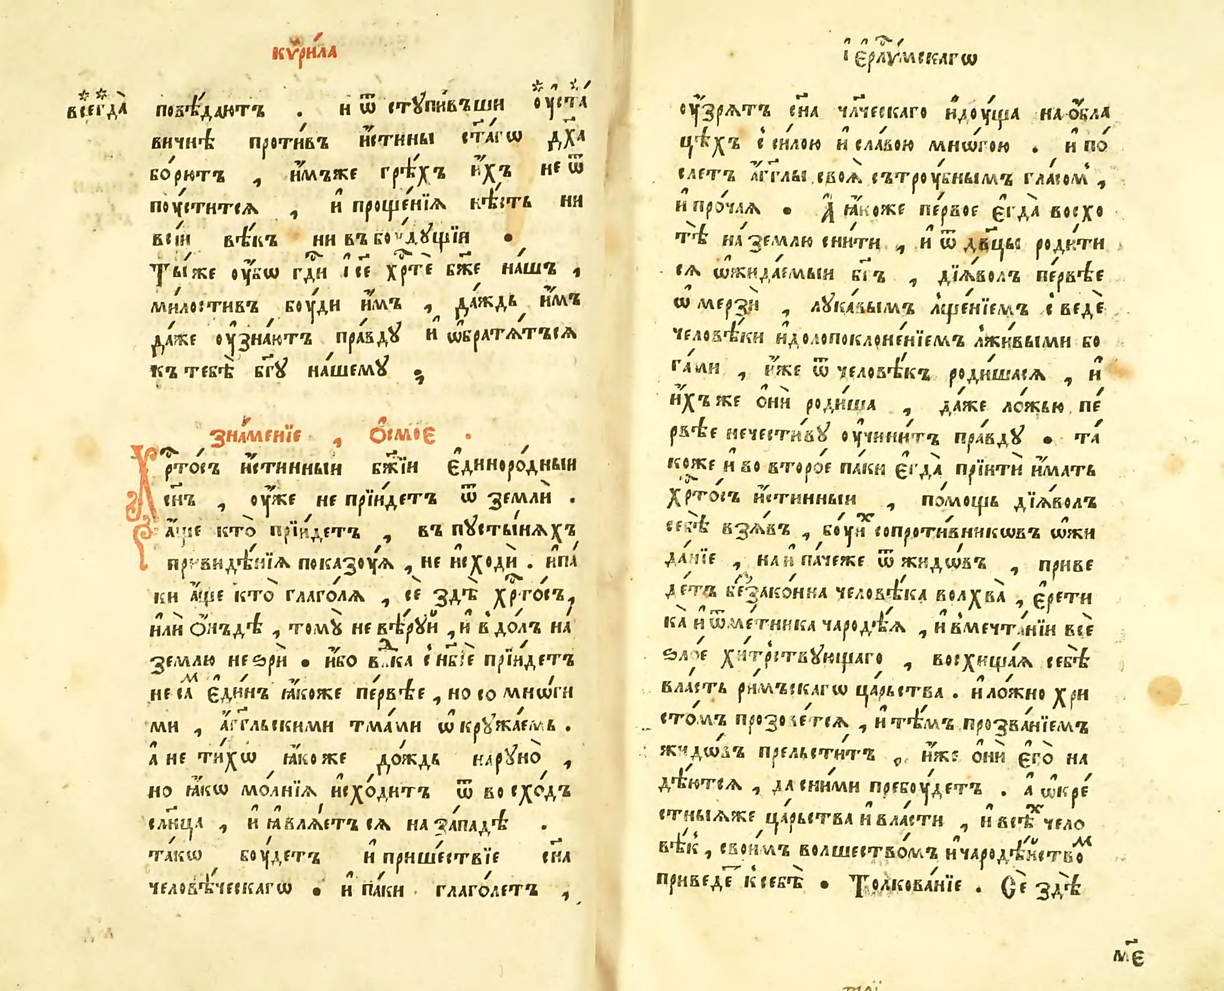 кѵ́рил̾ла
всегда̀ повѣ́даютъ . и ѿ стꙋпи́въши ᲂу҆ста́
вичнѣ проти́въ и҆́стины ст҃а́гѡ дх҃а
бо́рютъ , и҆́мъже грѣ́хъ и҆́хъ не ѿ
поу́стится , и҆ проще́нїꙗ нѣ́сть ни
всі́и вѣ́къ ни въ боу́дущїи •
Ты́же ᲂу҆́бѡ гдⷭ҇и і҆се хрⷭ҇тѐ бж҃е на́шъ ,
ми́лостивъ боу́ди и҆́мъ , да́ждь и҆́мъ
да́же ᲂу҆зна́ютъ пра́вдꙋ и҆ ѡ҆братѧ́тъсѧ
къ тебѣ̀ бг҃ꙋ на́шемꙋ
зна́менїе , ѻ҆смо́е .
Хрⷭ҇то́съ и҆́стинныи бж҃їи є҆диноро́дныи
сн҃ъ , ᲂу҆́же не прїи́детъ ѿ землѝ .
а҆́ще кто̀ прїи́детъ , въ пꙋсты́нѧхъ
привидѣ́нїѧ показоу́ѧ , не и҆сходѝ . и҆па́
ки а҆́ще кто̀ глаго́лѧ , сѐ здѣ̀ хрⷭ҇то́съ ,
и҆лѝ ѻ҆́нъдѣ , томꙋ̀ не вѣ́рꙋй , и҆ в до́лъ на́
землю не ѕрѝ • и҆́бо влⷣка с нб҃сѐ прїи́детъ
не саⷨ є҆ди́нъ ꙗ҆́коже пе́рвѣе , но со мно́ги
ми , а҆́гг҃льскими тма́ми ѡ҆крꙋжа́емь .
а҆ не ти́хѡ ꙗ҆́коже до́ждь нарꙋно̀ ,
но ꙗ҆́кѡ мо́лнїѧ и҆схо́дитъ ѿ восхо́дъ
сл҃нца , и҆ ꙗ҆влѧ́етъсѧ на за́падѣ .
та́кѡ боу́детъ и҆ прише́ствїе сн҃а
человѣ́ческагѡ • и҆ па́ки глаго́летъ ,
і҆ерⷭ҇ли́мскагѡ
ᲂу҆́зрѧтъ сн҃а чл҃ческаго и҆доу́ща на ѻ҆́бла
цѣхъ с си́лою и҆ сла́вою мно́гою . и҆ по́
слетъ а҆́гг҃лы своѧ̀ сътроу́бнымъ гла́сом ,
и҆ про́чаѧ • А҆ ꙗ҆́коже пе́рвое є҆гда̀ восхо
тѣ̀ на́ землю сни́ти , и҆ ѿ дв҃цы роди́ти
сѧ ѡ҆жида́емыи бг҃ъ , дїѧ́волъ пе́рвѣе
ѡ҆мерзѝ , лꙋка́вымъ лще́нїемъ сведѐ
человѣ́ки и҆долопоклоне́нїемъ лжи́выми бо
га́ми , и҆́же ѿ человѣ́къ роди́шасѧ , и҆
и҆́хъже ѻ҆нѝ роди́ша , да́же ло́жью пе́
рвѣе нечести́вꙋ ᲂу҆чини́тъ пра́вдꙋ • та́
коже и҆ во второ́е па́ки є҆гда̀ прїитѝ и҆́мать
хрⷭ҇то́съ и҆́стинныи , по́мощь дїѧ́волъ
себѣ̀ взѧ́въ , боу́иⷯ сопроти́вникѡвъ ѡ҆жи
да́нїе , на и҆ па́чеже ѿ жидѡ́въ , приве
де́тъ беззако́нна человѣ́ка волхва̀ , є҆рети
ка̀ и҆ ѿме́тника чародѣ́ѧ , и҆ в мечта́нїи всѐ
ѕло́е хи́трствꙋющаго , восхища́ѧ себѣ̀
вла́сть ри́мъскагѡ ца́рьства . и҆ ло́жно хри
сто́мъ прозове́тсѧ , и҆ тѣ́мъ прозва́нїемъ
жидѡ́въ прельсти́тъ , и҆́же ѻ҆нѝ є҆го̀ на
дѣ́ютсѧ , да с ни́ми пребоу́детъ . а҆ ѡ҆кре́
стныѧже ца́рьства и҆ вла́сти , и҆ всѣⷯ чело
вѣ́к , свои́мъ волшество́мъ и҆ чародѣ́йствоⷨ
приведе́ к себѣ̀ • Толкова́нїе . Сѐ здѣ̀
м҃є